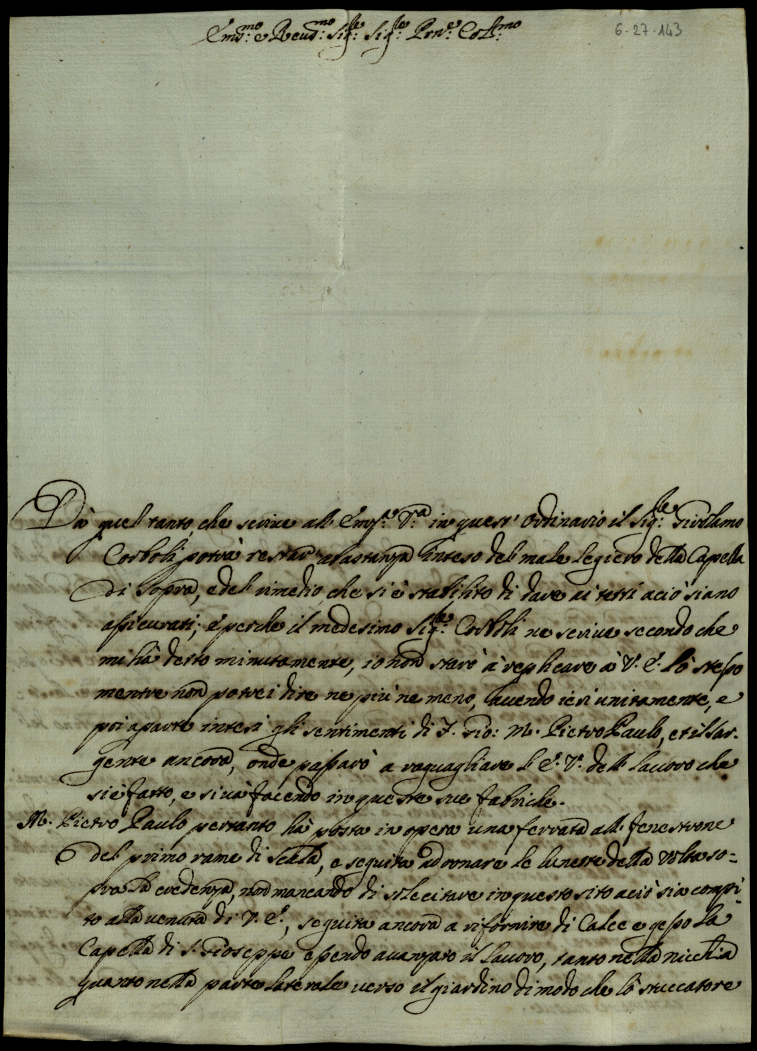 Em:mo e Reud:mo Sig:re Sig:re Prne Col:mo
6-27-143
Da quel tanto che scriue all' Emze Va in quest' ordinario il Sig:re Girolamo
Corboli potrà restar' abastanza inteso del male legiero della Capella
di sopra, e del rimedio che si è stabilito di dare ai tetti aciò siano
assicurati; e perche il medesimo Sig:re Corboli ne scriue secondo che
mi hà detto minutamente, io non starò à replicare à V. E. lo stesso
mentre non potrei dire ne più ne meno, hauendo ieri unitamente, e
poi aparte intesi gli sentimenti di F. Gio: M. Pietro Paulo, et il Sar-
gente ancora, onde passarò a raguagliare l' E. V. dell' lauoro che
si è fatto, e si uà facendo in queste sue fabriche.
M. Pietro Paulo pertanto hà posta in opera una ferrata all' fenestrone
del primo rame di scala, e seguita ad ornare le lunette della volta so=
pra la credenza, non mancando di solecitare in questo sito aciò sia compi-
to alla uenuta di V. E., seguita ancora a rifornire di Calce e gesso la
Capella di S. Gioseppe essendo auanzato il lauoro, tanto nella nicchia
quanto nella parte laterale uerso il giardino di modo che lo stuccatore